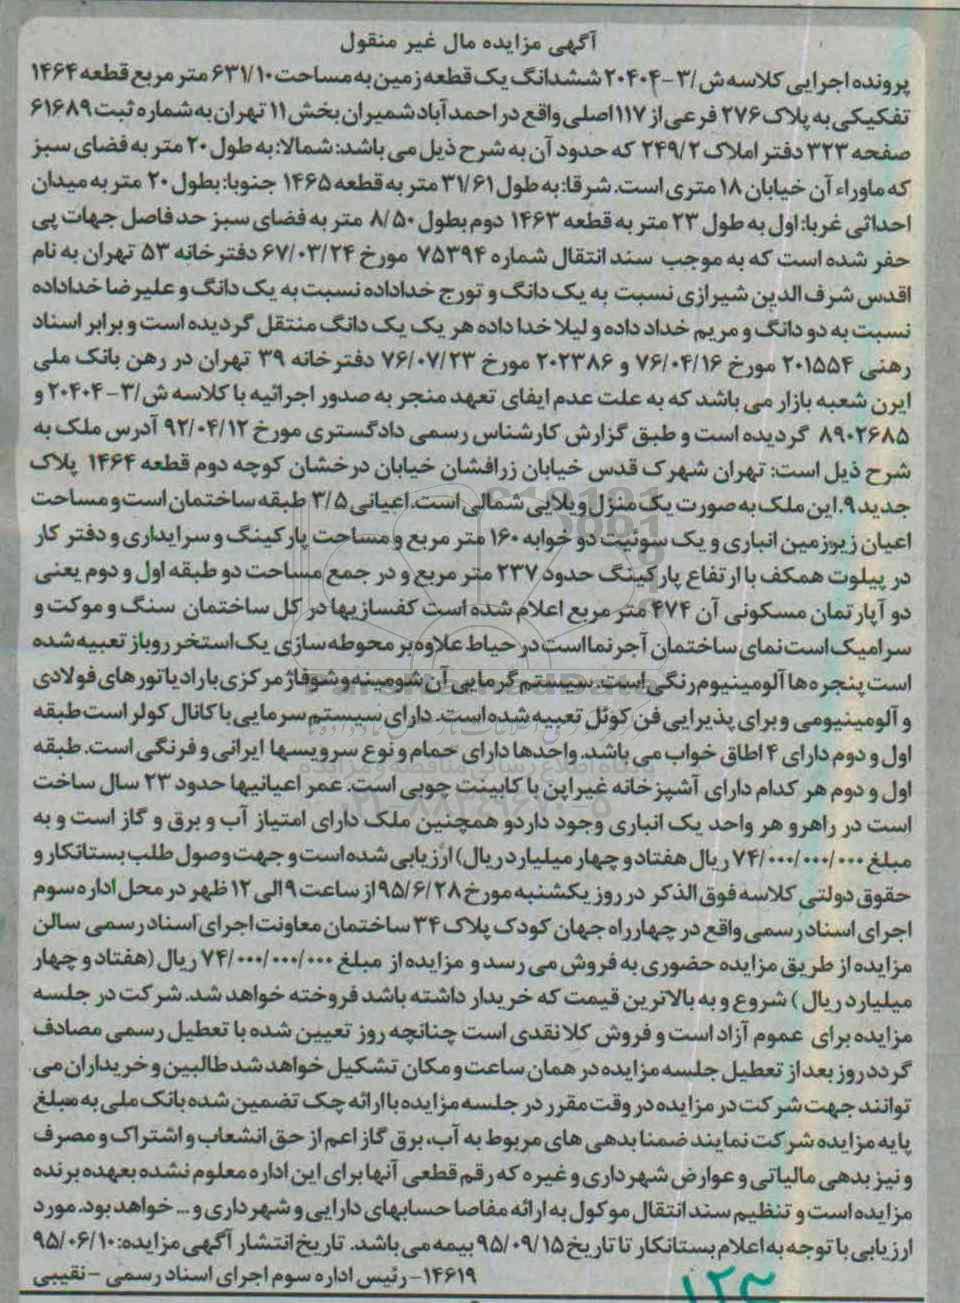 آگهی مزایده مال غیر منقول
پرونده اجرایی کلاسه ش/۳-۲۰۴۰۴ ششدانگ یک قطعه زمین به مساحت ۶۳۱/۱۰ متر مربع قطعه ۱۴۶۴
تفکیکی به پلاک ۲۷۶ فرعی از ۱۱۷ اصلی واقع در احمد آباد شمیران بخش ۱۱ تهران به شماره ثبت ۶۱۶۸۹
صفحه ۳۲۳ دفتر املاک ۲۴۹/۲ که حدود آن به شرح ذیل می باشد: شمالا: به طول ۲۰ متر به فضای سبز
که ماوراء آن خیابان ۱۸ متری است. شرقا: به طول ۳۱/۶۱ متر به قطعه ۱۴۶۵ جنوبا: بطول ۲۰ متر به میدان
احداثی غربا: اول به طول ۲۳ متر به قطعه ۱۴۶۳ دوم بطول ۸/۵۰ متر به فضای سبز حد فاصل جهات پی
حفر شده است که به موجب سند انتقال شماره ۷۵۳۹۴ مورخ ۶۷/۰۳/۲۴ دفتر خانه ۵۳ تهران به نام
اقدس شرف الدین شیرازی نسبت به یک دانگ و تورج خداداده نسبت به یک دانگ و علیرضا خداداده
نسبت به دو دانگ و مریم خداد داده و لیلا خدا داده هر یک یک دانگ منتقل گردیده است و برابر اسناد
رهنی ۲۰۱۵۵۴ مورخ ۷۶/۰۴/۱۶ و ۲۰۲۳۸۶ مورخ ۷۶/۰۷/۲۳ دفتر خانه ۳۹ تهران در رهن بانک ملی
ایرن شعبه بازار می باشد که به علت عدم ایفای تعهد منجر به صدور اجرائیه با کلاسه ش/۳-۲۰۴۰۴ و
۸۹۰۲۶۸۵ گردیده است و طبق گزارش کارشناس رسمی دادگستری مورخ ۹۲/۰۴/۱۲ آدرس ملک به
شرح ذیل است: تهران شهرک قدس خیابان زرافشان خیابان درخشان کوچه دوم قطعه ۱۴۶۴ پلاک
جدید ۹. این ملک به صورت یک منزل ویلایی شمالی است. اعیانی ۳/۵ طبقه ساختمان است و مساحت
اعیان زیرزمین انباری و یک سوئیت دو خوابه ۱۶۰ متر مربع و مساحت پارکینگ و سرایداری و دفتر کار
در پیلوت همکف با ارتفاع پارکینگ حدود ۲۳۷ متر مربع و در جمع مساحت دو طبقه اول و دوم یعنی
دو آپارتمان مسکونی آن ۴۷۴ متر مربع اعلام شده است کفسازیها در کل ساختمان سنگ و موکت و
سرامیک است نمای ساختمان آجر نما است در حیاط علاوه بر محوطه سازی یک استخر روباز تعبیه شده
است پنجره ها آلومینیوم رنگی است. سیستم گرمایی آن شومینه و شوفاژ مرکزی با رادیاتورهای فولادی
و آلومینیومی و برای پذیرایی فن کوئل تعبیه شده است. دارای سیستم سرمایی با کانال کولر است طبقه
اول و دوم دارای ۴ اطاق خواب می باشد. واحدها دارای حمام و نوع سرویسها ایرانی و فرنگی است. طبقه
اول و دوم هر کدام دارای آشپزخانه غیر اپن با کابینت چوبی است. عمر اعیانیها حدود ۲۳ سال ساخت
است در راهرو هر واحد یک انباری وجود دارد و همچنین ملک دارای امتیاز آب و برق و گاز است و به
مبلغ ۷۴/۰۰۰/۰۰۰/۰۰۰ ریال هفتاد و چهار میلیارد ریال) ارزیابی شده است و جهت وصول طلب بستانکار و
حقوق دولتی کلاسه فوق الذکر در روز یکشنبه مورخ ۹۵/۶/۲۸ از ساعت ۹ الی ۱۲ ظهر در محل اداره سوم
اجرای اسناد رسمی واقع در چهارراه جهان کودک پلاک ۳۴ ساختمان معاونت اجرای اسناد رسمی سالن
مزایده از طریق مزایده حضوری به فروش می رسد و مزایده از مبلغ ۷۴/۰۰۰/۰۰۰/۰۰۰ ریال (هفتاد و چهار
میلیارد ریال) شروع و به بالاترین قیمت که خریدار داشته باشد فروخته خواهد شد. شرکت در جلسه
مزایده برای عموم آزاد است و فروش کلا نقدی است چنانچه روز تعیین شده با تعطیل رسمی مصادف
گردد روز بعد از تعطیل جلسه مزایده در همان ساعت و مکان تشکیل خواهد شد طالبین و خریداران می
توانند جهت شرکت در مزایده در وقت مقرر در جلسه مزایده با ارائه چک تضمین شده بانک ملی به مبلغ
پایه مزایده شرکت نمایند ضمنا بدهی های مربوط به آب، برق گاز اعم از حق انشعاب و اشتراک و مصرف
و نیز بدهی مالیاتی و عوارض شهرداری و غیره که رقم قطعی آنها برای این اداره معلوم نشده بعهده برنده
مزایده است و تنظیم سند انتقال موکول به ارائه مفاصا حسابهای دارایی و شهرداری و ... خواهد بود. مورد
ارزیابی با توجه به اعلام بستانکار تا تاریخ ۹۵/۰۹/۱۵ بیمه می باشد. تاریخ انتشار آگهی مزایده: ۹۵/۰۶/۱۰
۱۴۶۱۹- رئیس اداره سوم اجرای اسناد رسمی - نقیبی